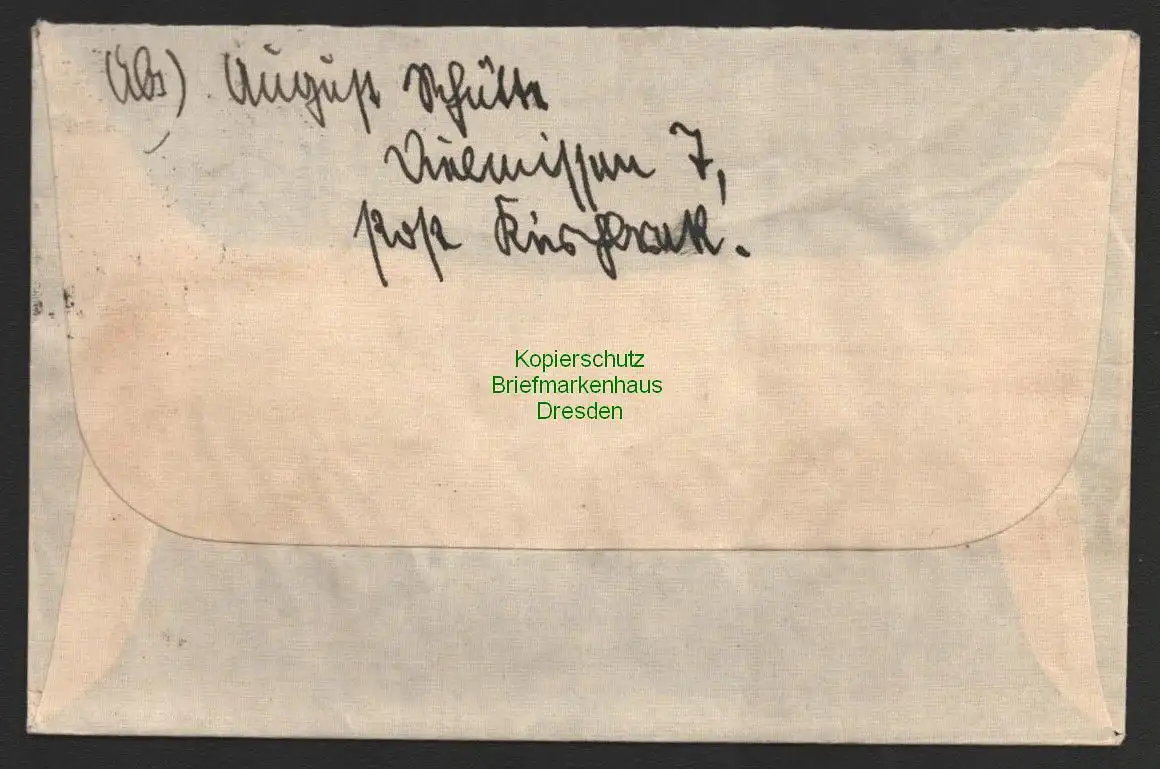 (Abs) August Schütte
Dielmissen 7,
Post Kirchbrak.
Kopierschutz
Briefmarkenhaus
Dresden